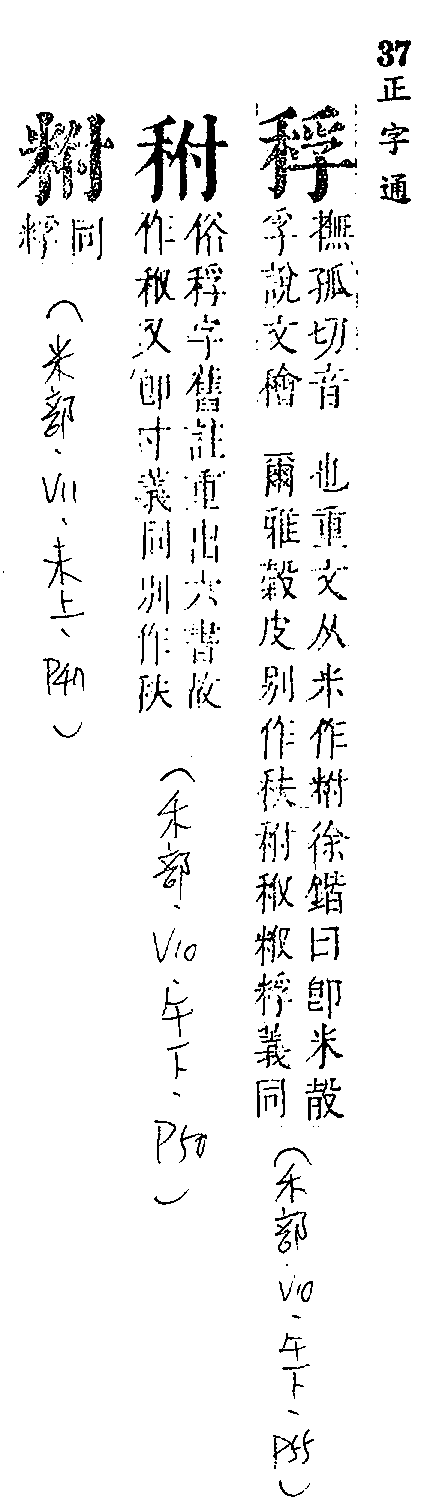 37 正字通
稃
撫孤切音 也重文从米作徐鍇曰卽米散
孚說文檜 爾雅穀皮別作粰義同
(禾部、V10、午下、P55)
俗稃字舊註重出六書故
作又卽寸義同別作
(禾部、V10、午下、P50)
同
粰
(米部、V11、未上、P40)